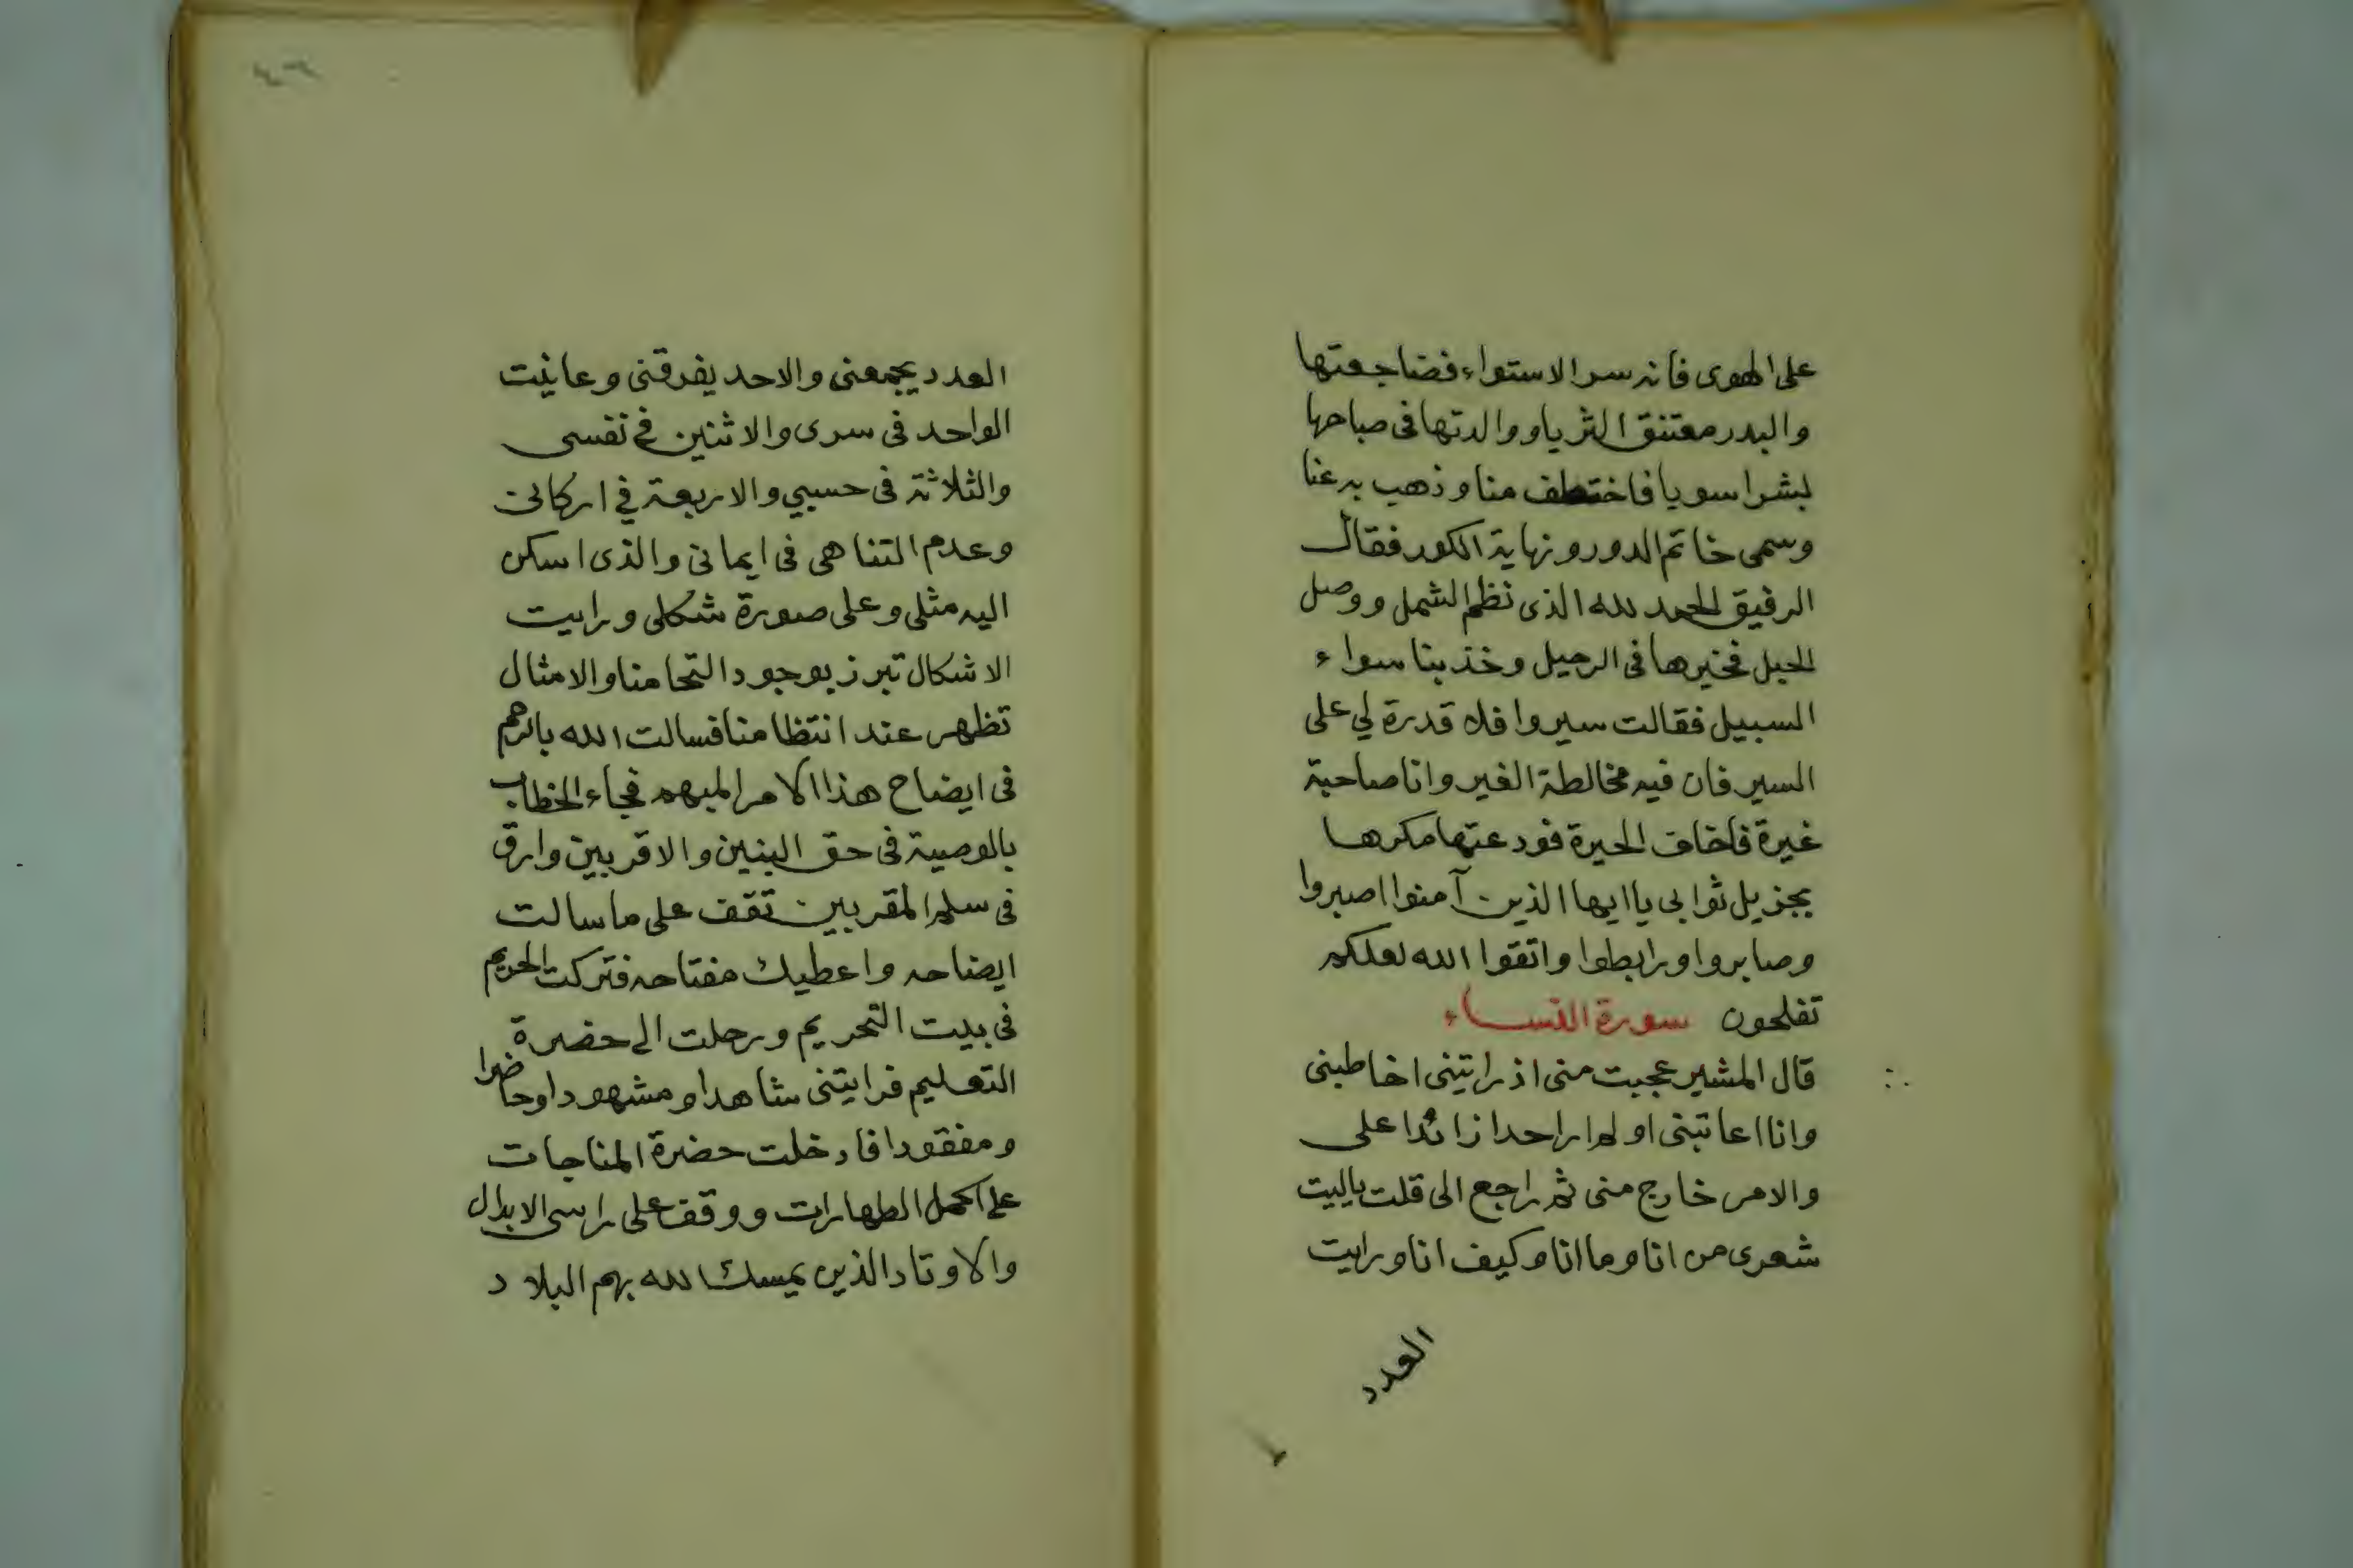 على الهوى فانه سر الاستواء فضاجعتها
والبدر معتنق الثريا ووالدتها فى صباحها
بشرا سويا فاختطف منا وذهب به عنا
وسمى خاتم الدور ونهاية الكور فقال
الرفيق الحمد لله الذى نظم الشمل ووصل
الحبل فخيرها فى الرحيل وخذ بنا سواء
السبيل فقالت سيروا فلا قدرة لي على
السير فان فيه مخالطة الغير وانا صاحبة
غيرة فاخاف الحيرة فودعتها مكرها
بجزيل ثوابى يا ايها الذين آمنوا اصبروا
وصابروا ورابطوا واتقوا الله لعلكم
تفلحون سورة النساء
قال المشير عجبت منى اذ رايتنى اخاطبنى
وانا اعاتبنى او لم ار احدا زائدا على
والامر خارج منى ثم راجع الى قلت ياليت
شعرى من انا وما انا وكيف انا ورايت
العدد
العدد يجمعنى والاحد يفرقنى وعاينت
الواحد فى سرى والاثنين فى نفسى
والثلاثة فى حسيي والاربعة في اركانى
وعدم التناهى فى ايمانى والذى اسكن
اليه مثلى وعلى صورة شكلى ورايت
الاشكال تبرز بوجود التحامنا والامثال
تظهر عند انتظامنا فسالت الله بالرحم
فى ايضاح هذا الامر المبهم فجاء الخطاب
بالوصية فى حق البنين والاقربين وارق
فى سلم المقربين تقف على ما سالت
ايضاحه واعطيك مفتاحه فتركت الحريم
فى بيت التحريم ورحلت الى حضرة
التعليم فرايتنى شاهدا ومشهودا وحاضرا
ومفقودا فادخلت حضرة المناجات
على اكمل الطهارات ووقف على راسى الابدال
والاوتاد الذين يمسك الله بهم البلاد